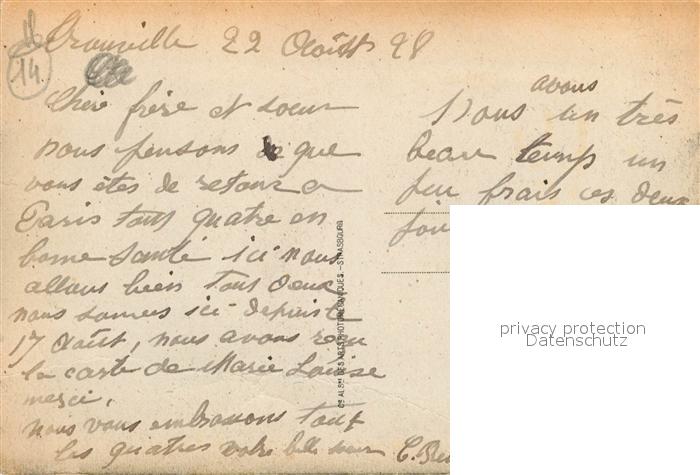 Trouville 22 Août 28
14
Chère frère et soeur
nous pensons que
vous êtes de retour a
Paris tous quatre en
bonne santé ici nous
allons bien tous deux
nous sommes ici depuis le
17 Août, nous avons reçu
la carte de Marie Louise
merci,
nous vous embrassons tous
les quatres votre belle soeur
avons
Nous un très
beau temps un
peu frais ces deux
Cie ALSne DES ARTS PHOTOMÉCANIQUES. - STRASBOURG
privacy protection
Datenschutz